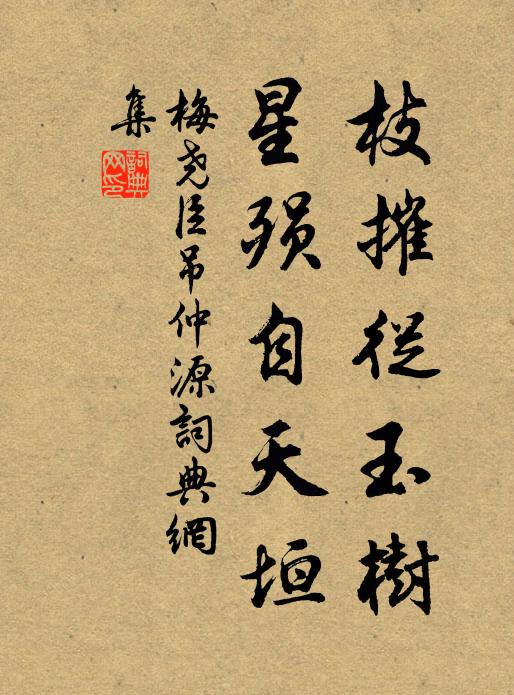 枝摧從玉樹
星殞自天垣
梅堯臣吊仲源詞典網
集
詞典
网印